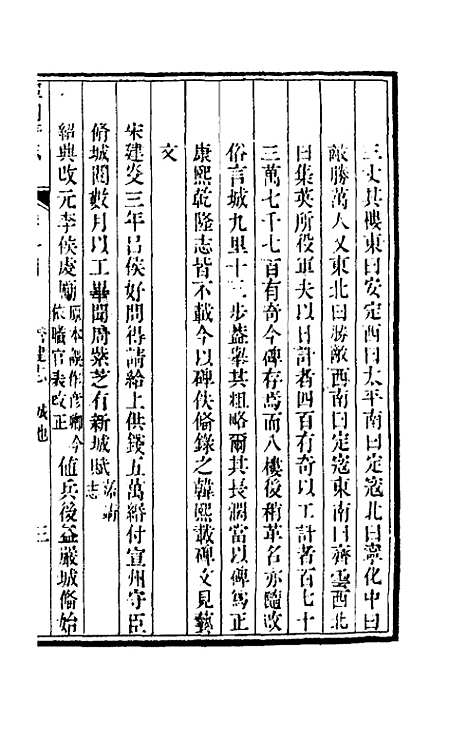 三丈其樓東曰安定西曰太平南曰定寇北曰寧化中曰
敵勝萬人又東北曰勝敵西南曰定寇東南曰齊雲西北
曰集英所役軍夫以日計者四百有奇以工計者百七十
三萬七千七百有奇今碑存焉而八樓後稍革名亦隨改
俗言城九里十三步葢舉其粗略爾其長濶當以碑爲正
康熙乾隆志皆不載今以碑佚脩錄之韓熙載碑文見藝
文
宋建炎三年呂侯好問得請給上供錢五萬緡付宣州守臣
脩城閱數月以工畢聞周紫芝有新城賦
嘉靖志
紹興改元李侯處勵
原本誤作彥卿今
依職官表改正
値兵後益嚴城脩始
營建志
城池
三